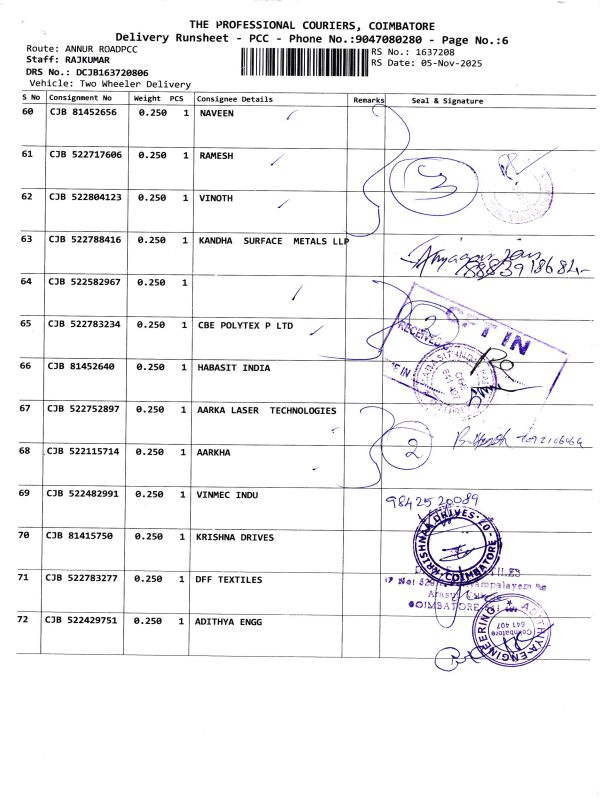 THE PROFESSIONAL COURIERS, COIMBATORE
Delivery Runsheet - PCC - Phone No.:9047080280 - Page No.:6
Route: ANNUR ROADPCC
RS No.: 1637208
Staff: RAJKUMAR
RS Date: 05-Nov-2025
DRS No.: DCJB163720806
Vehicle: Two Wheeler Delivery
S No Consignment No Weight PCS Consignee Details Remarks Seal & Signature
60 CJB 81452656 0.250 1 NAVEEN
61 CJB 522717606 0.250 1 RAMESH
3
62 CJB 522804123 0.250 1 VINOTH
63 CJB 522788416 0.250 1 KANDHA SURFACE METALS LLP
64 CJB 522582967 0.250 1
65 CJB 522783234 0.250 1 CBE POLYTEX P LTD
2
RECEIVED
IN
66 CJB 81452640 0.250 1 HABASIT INDIA
67 CJB 522752897 0.250 1 AARKA LASER TECHNOLOGIES
68 CJB 522115714 0.250 1 AARKHA
2
69 CJB 522482991 0.250 1 VINMEC INDU
9842520089
70 CJB 81415750 0.250 1 KRISHNA DRIVES
KRISHNAA DRIVES COIMBATORE
71 CJB 522783277 0.250 1 DFF TEXTILES
COIMBATORE
72 CJB 522429751 0.250 1 ADITHYA ENGG
ADITHYA ENGINEERING
Coimbatore
641 407